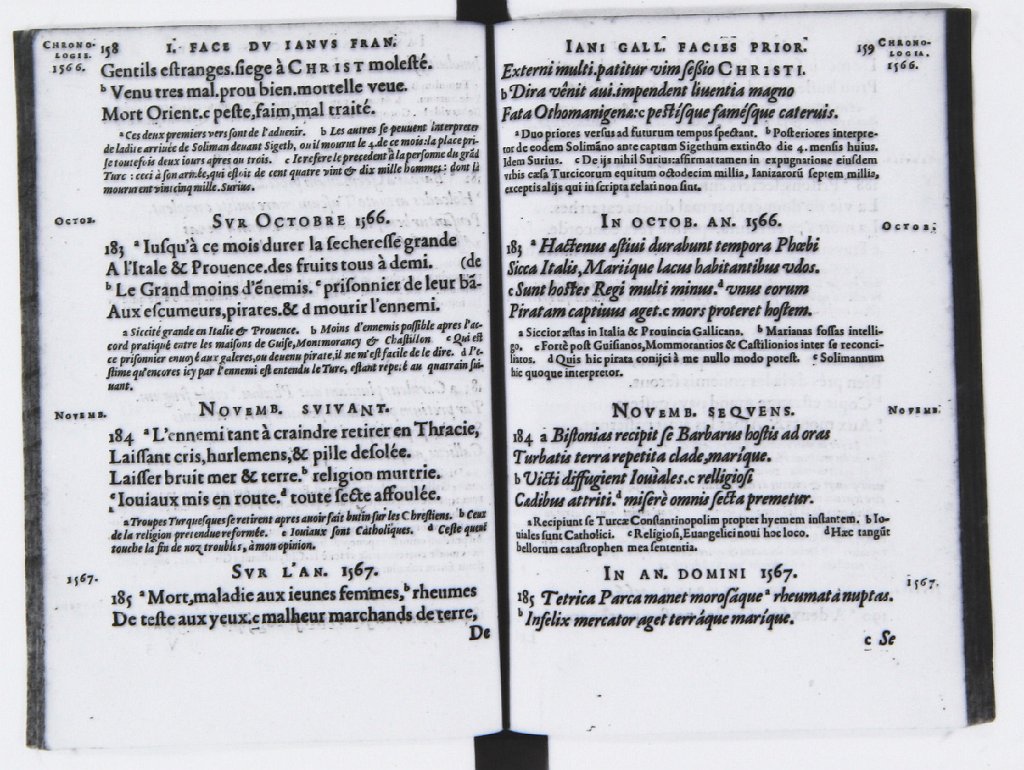 CHRONO-
LOGIE.
1566.
158 I. FACE DV IANVS FRAN.
Gentils estranges. siege à CHRIST molesté.
b Venu tres mal. prou bien. mortelle veue.
Mort Orient. c peste, faim, mal traité.
a Ces deux premiers vers sont de l'aduenir. b Les autres se peuuent interpreter
de ladite arriuée de Soliman deuant Sigeth, ou il mourut le 4. de ce mois: la place pri-
se toutefois deux iours apres ou trois. c Ie refere le precedent à la personne du grãd
Turc: ceci à son armée, qui estois de cent quatre vint & dix mille hommes: dont là
moururent vint cinq mille. Surius.
OCTOB.
SVR OCTOBRE 1566.
183 a Iusqu'à ce mois durer la secheresse grande
A l'Itale & Prouence. des fruits tous à demi. (de
b Le Grand moins d'énemis. c prisonnier de leur bã-
Aux escumeurs, pirates. & d mourir l'ennemi.
a Siccité grande en Italie & Prouence. b Moins d'ennemis possible apres l'ac-
cord pratiqué entre les maisons de Guise, Montmorancy & Chastillon. c Qui est
ce prisonnier enuoyé aux galeres, ou deuenu pirate, il ne m'est facile de le dire. d I'e-
stime qu'encores icy par l'ennemi est entendu le Turc, estant repeté au quatrain sui-
uant.
NOVEMB.
NOVEMB. SVIVANT.
184 a L'ennemi tant à craindre retirer en Thracie,
Laissant cris, hurlemens, & pille desolée.
Laisser bruit mer & terre. b religion murtrie.
c Iouiaux mis en route. d toute secte affoulée.
a Troupes Turquesques se retirent apres auoir fait butin sur les Chrestiens. b Ceux
de la religion pretendue reformée. c Iouiaux sont Catholiques. d Ceste queuë
touche la fin de noz troubles, à mon opinion.
1567.
SVR L'AN. 1567.
185 a Mort, maladie aux ieunes femmes, b rheumes
De teste aux yeux. c malheur marchands de terre,
De
IANI GALL. FACIES PRIOR. 159
CHRONO-
LOGIA.
1566.
Externi multi. patitur vim sessio CHRISTI.
b Dira vênit aui. impendent liuentia magno
Fata Othomanigenæ: c pestísque famésque cateruis.
a Duo priores versus ad futurum tempus spectant. b Posteriores interpre-
tor de eodem Solimãno ante captum Sigethum extincto die 4. mensis huius.
Idem Surius. c De ijs nihil Surius: affirmat tamen in expugnatione eiusdem
vrbis cæsa Turcicorum equitum octodecim millia, Ianizarorũ septem millia,
exceptis alijs qui in scripta relati non sint.
OCTOB.
IN OCTOB. AN. 1566.
183 a Hactenus æstiui durabunt tempora Phœbi
Sicca Italis, Mariíque lacus habitantibus vdos.
c Sunt hostes Regi multi minus. d vnus eorum
Piratam captiuus aget. c mors proteret hostem.
a Siccior æstas in Italia & Prouincia Gallicana. b Marianas fossas intelli-
go. c Fortè post Guisianos, Mommorantios & Castilionios inter se reconci-
liatos. d Quis hic pirata conijci à me nullo modo potest. e Solimannum
hic quoque interpretor.
NOVEMB.
NOVEMB. SEQVENS.
184 a Bistonias recipit se Barbarus hostis ad oras
Turbatis terra repetita clade, maríque.
b Victi diffugient Iouiales. c relligiosi
Cladibus attriti. d miserè omnis secta premetur.
a Recipiunt se Turcæ Constantinopolim propter hyemem instantem. b Io-
uiales sunt Catholici. c Religiosi, Euangelici noui hoc loco. d Hæc tangũt
bellorum catastrophen mea sententia.
1567.
IN AN. DOMINI 1567.
185 Tetrica Parca manet morosáque a rheumata nuptas.
b Infelix mercator aget terráque maríque.
c Se